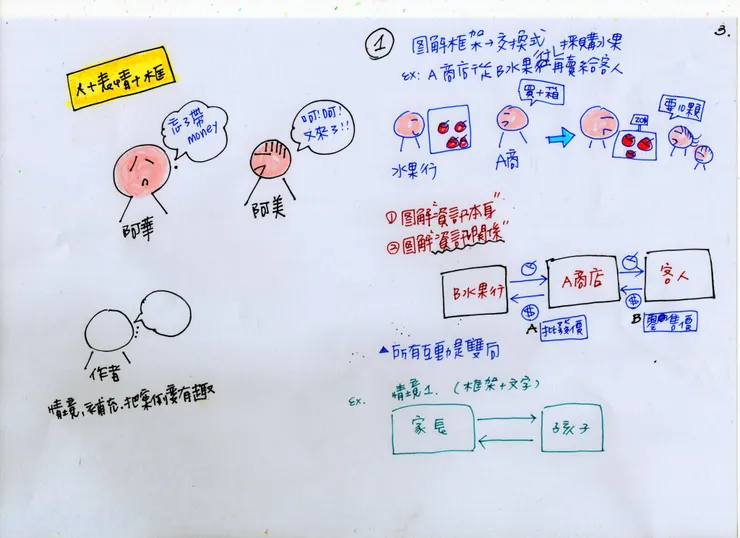 3.
人+表情+框
忘了帶
money
呵!呵!
又來了!!
阿華
阿美
作者
情境、補充、把案例變有趣
① 圖解框架→交換式 採購水果
ex: A商店從B水果行再賣給客人
買+箱
要10顆
水果行
A商
① 圖解"資訊本身"
② 圖解"資訊關係"
B水果行
A商店
客人
$
$
A 批發價
B 零售價
▲所有互動是雙向
ex. 情境1. (框架+文字)
家長
孩子